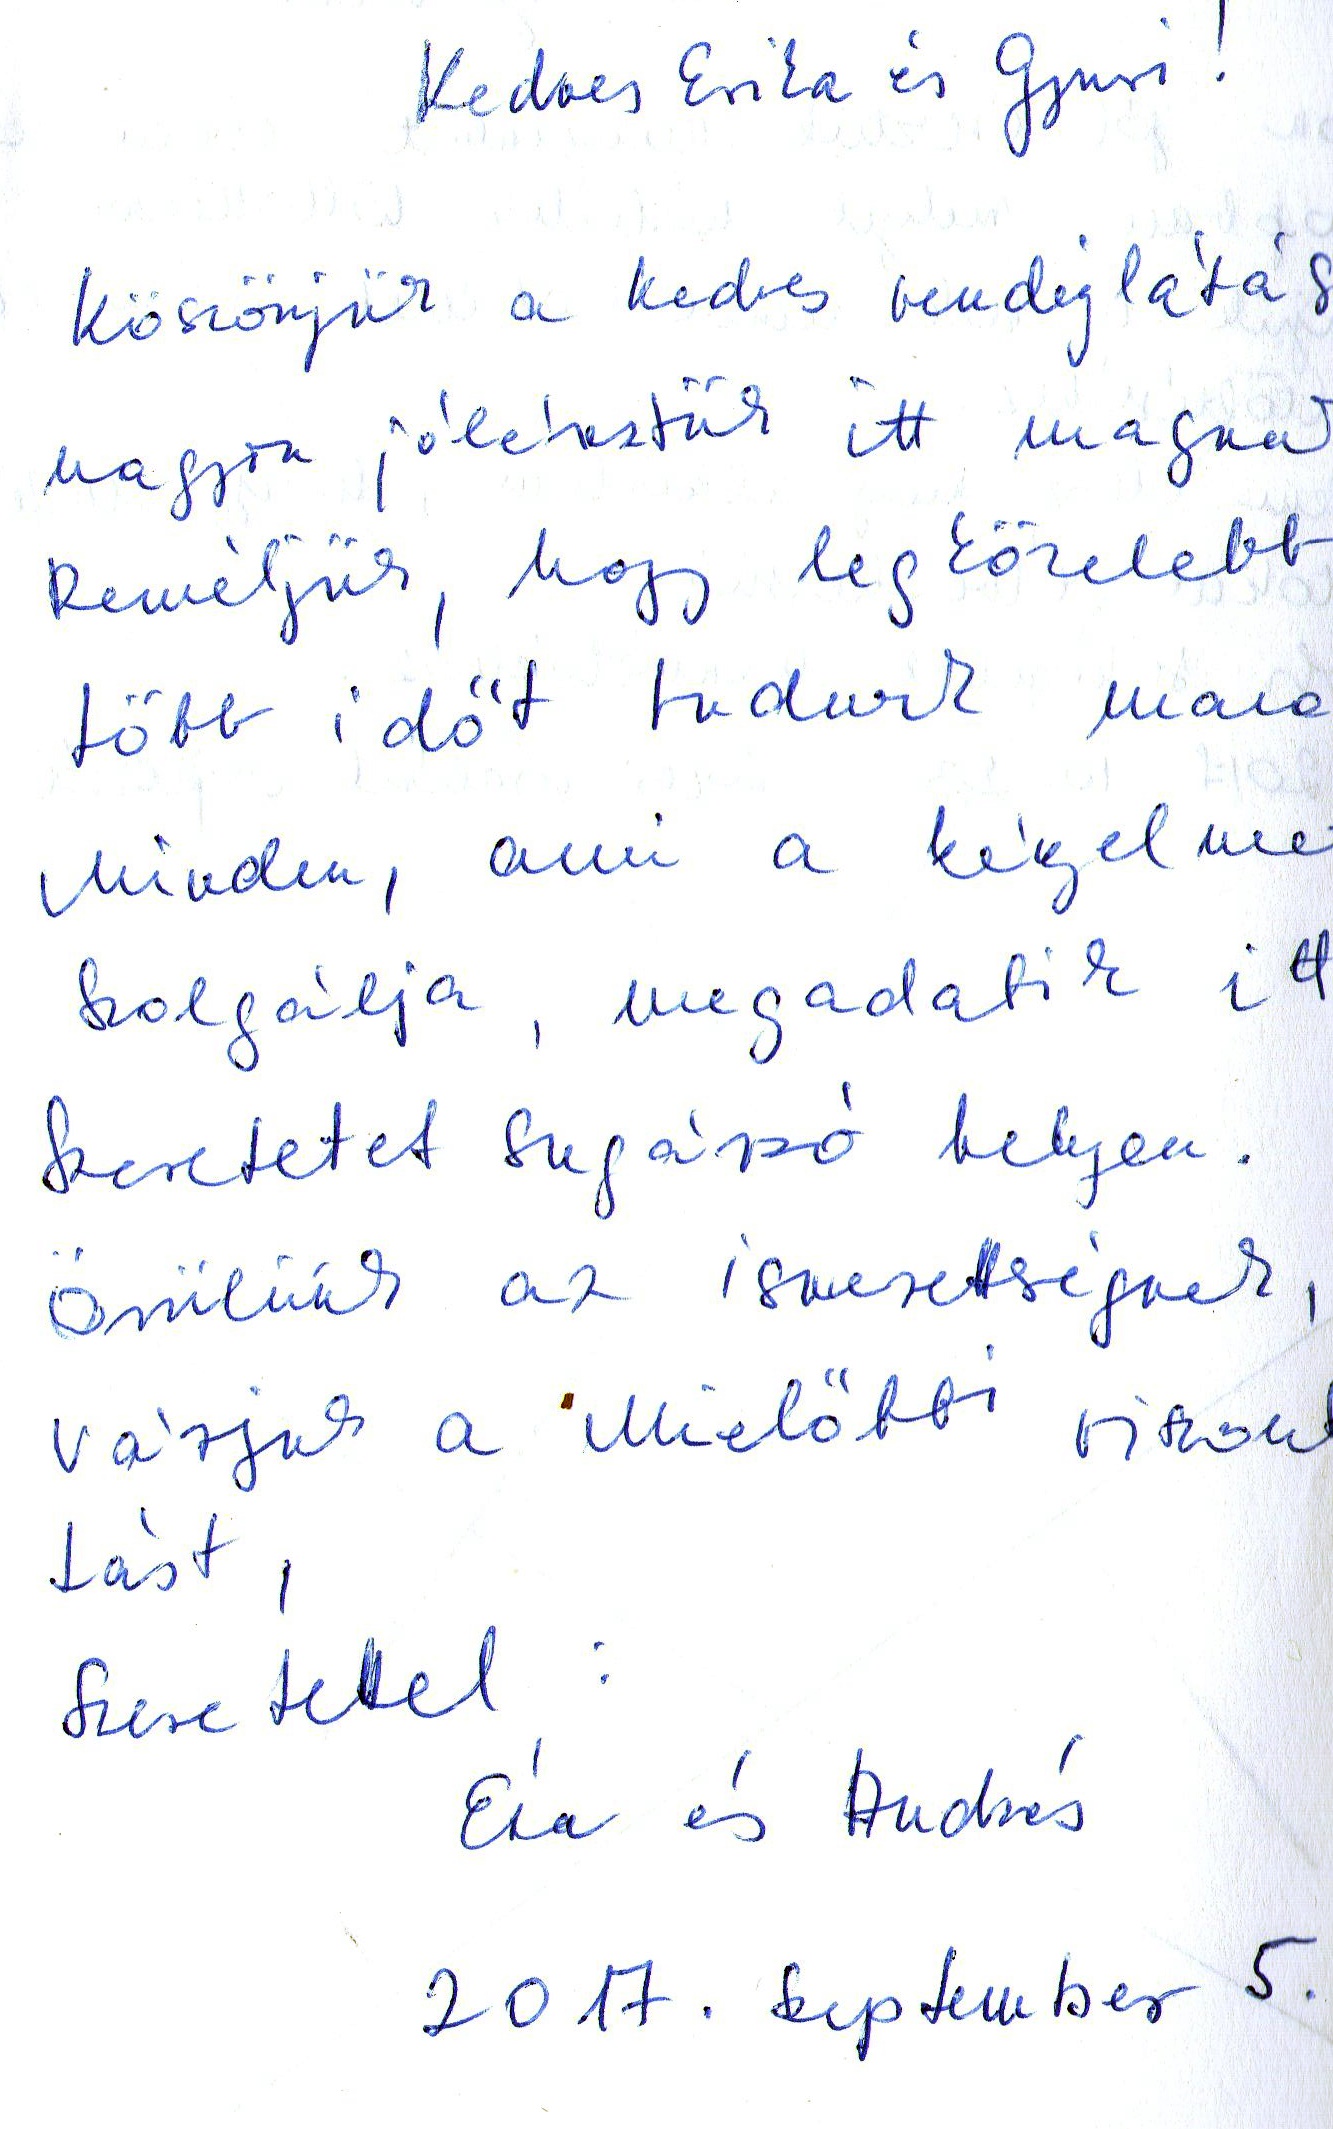 Kedves Erika és Gyuri!
Köszönjük a kedves vendéglátás
nagyon jól éreztük itt magun
Reméljük, hogy legközelebb
több időt tudunk mara
Minden, ami a kényelme
szolgálja, megadatik itt
szeretetet sugárzó helyen.
Örülünk az ismeretségnek,
várjuk a mielőbbi viszont
tást,
Szeretettel:
Éva és András
2017. szeptember 5.